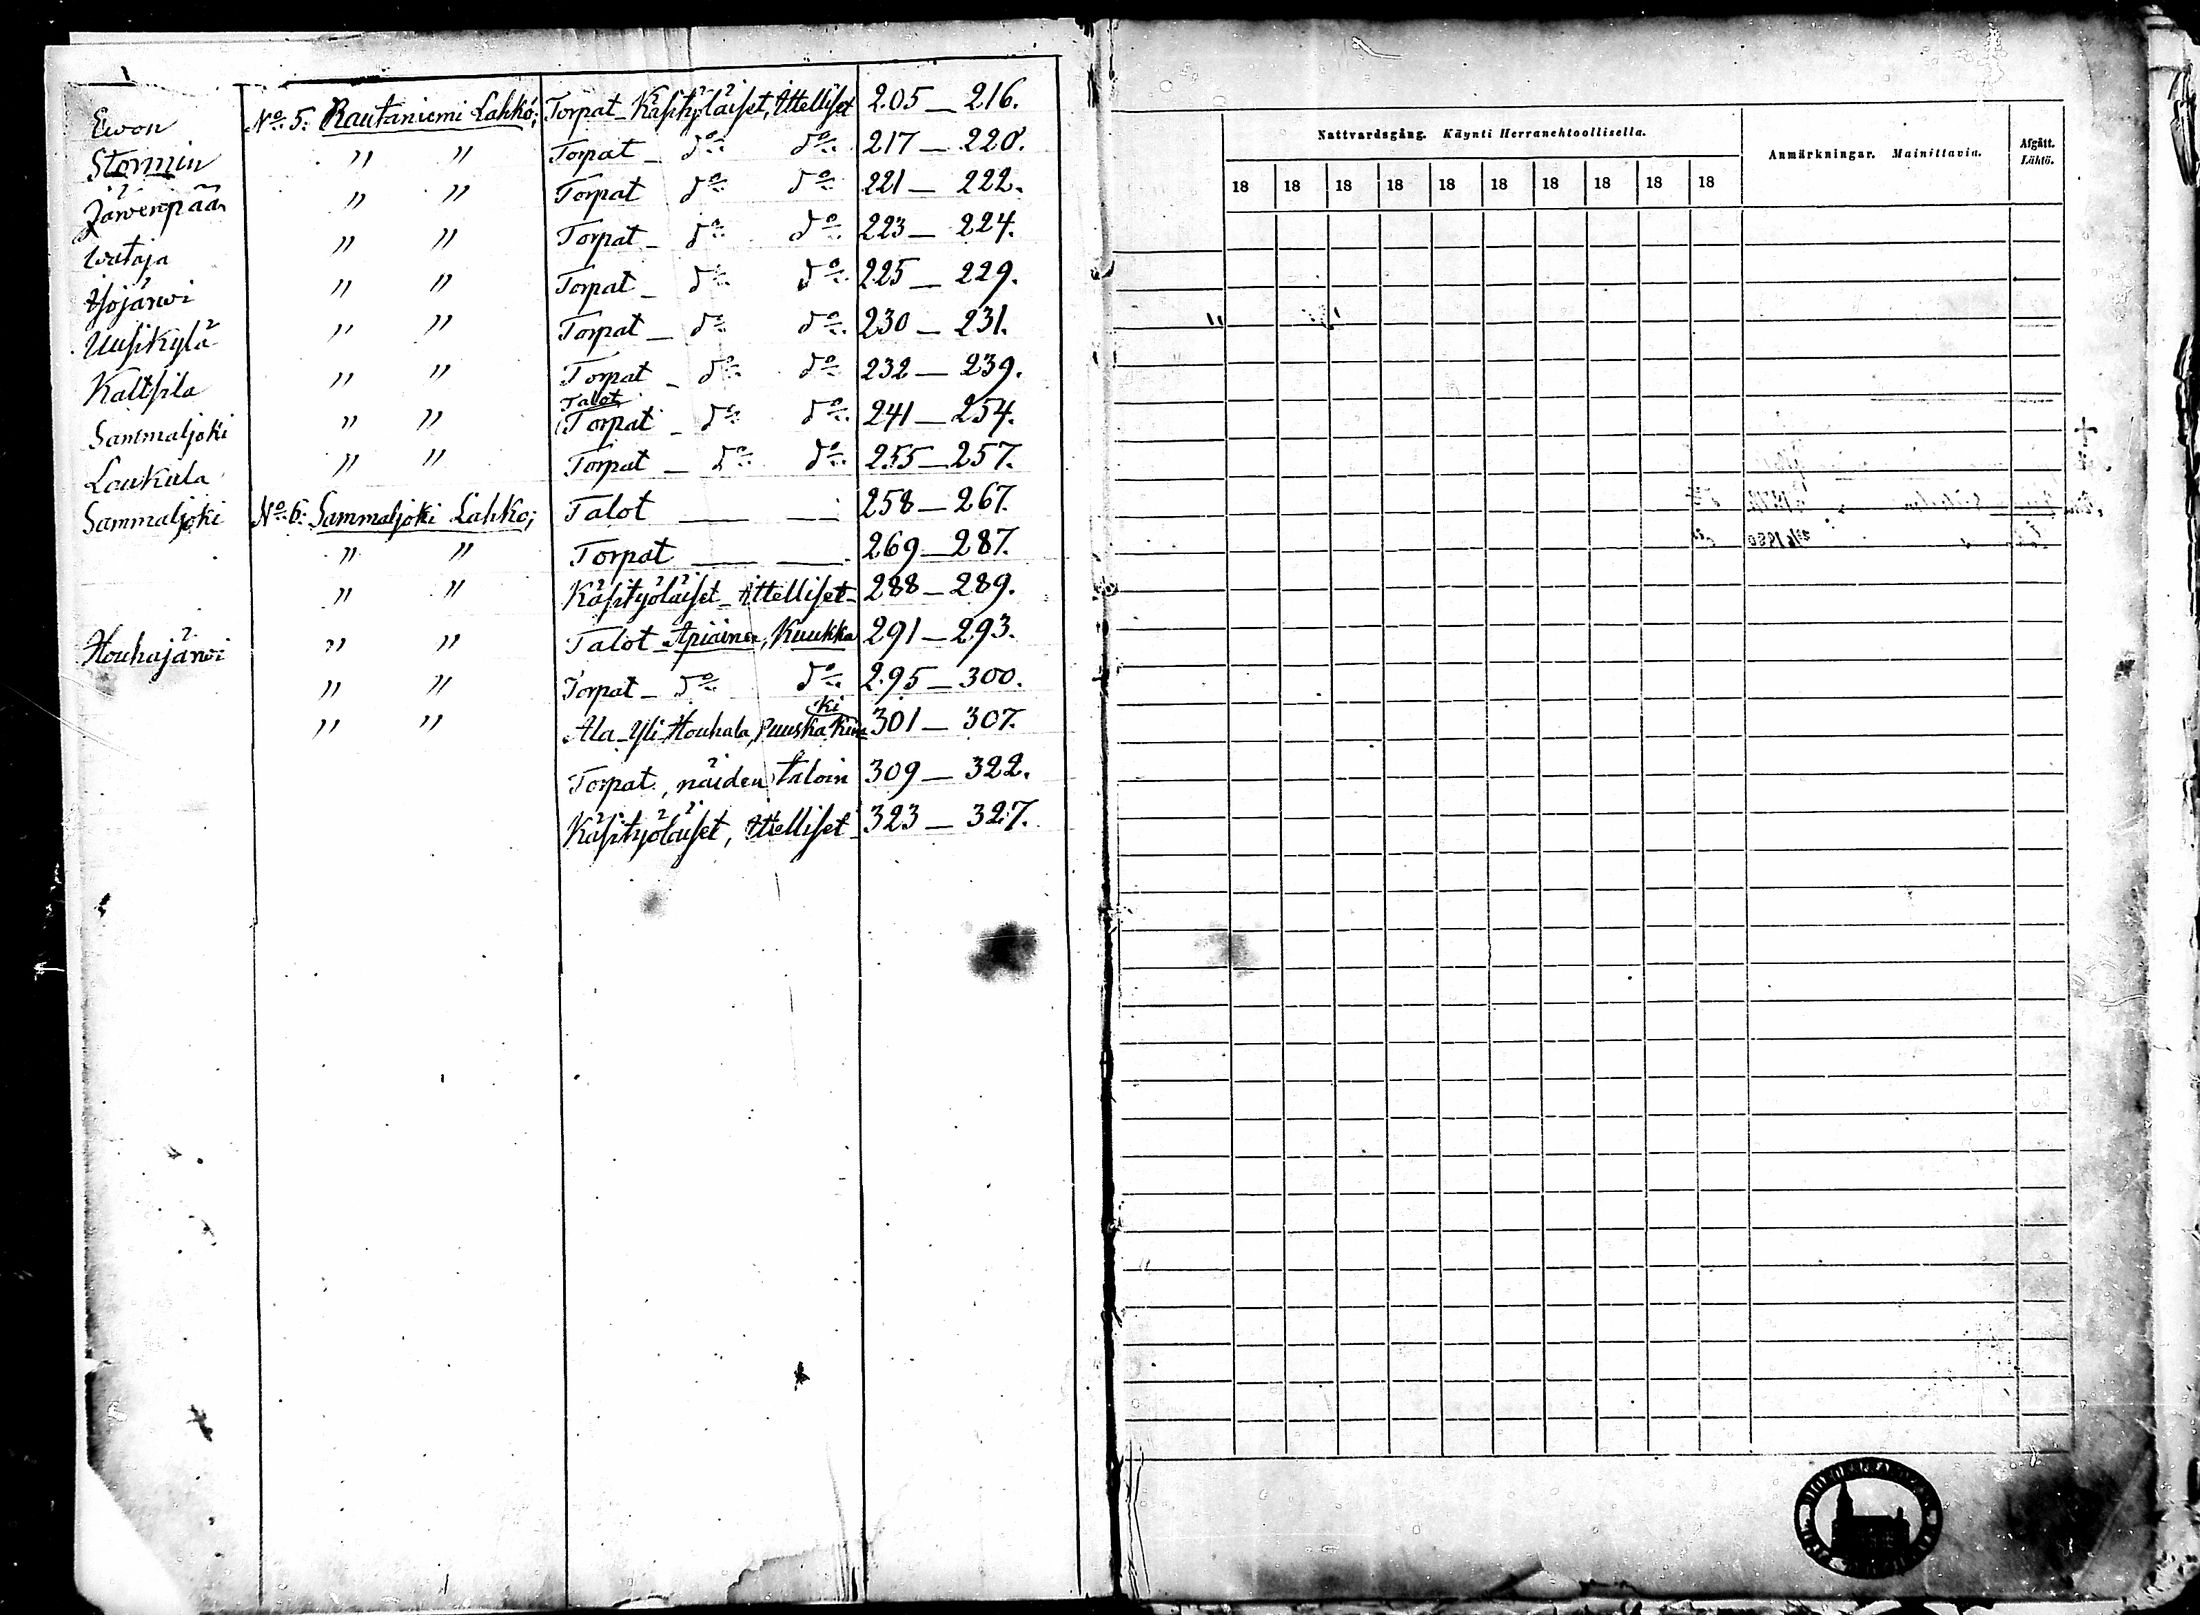 Ewon Nº 5. Rautaniemi Lahko; Torpat Käsityöläiset, Ittelliset 205 — 216.
Stormin " " Torpat — dº dº 217 — 220.
Järvenpää " " Torpat dº dº 221 — 222.
Wataja " " Torpat — dº dº 223 — 224.
Yöjärwi " " Torpat — dº dº 225 — 229.
Uusikylä " " Torpat — dº dº 230 — 231.
Kaltsila " " Torpat — dº dº 232 — 239.
Talot
Sammaljoki " " Torpat — dº dº 241 — 254.
Laukula " " Torpat — dº dº 255 — 257.
Sammaljoki Nº 6. Sammaljoki Lahko; Talot — — 258 — 267.
" " Torpat — — 269 — 287.
" " Käsityöläiset — Ittelliset — 288 — 289.
Houhajärwi " " Talot — Apiainen, Kuukka 291 — 293.
" " Torpat — dº dº 295 — 300.
ki
" " Ala - Yli Houhala, Puuska 301 — 307.
Torpat, näiden taloin 309 — 322.
Käsityöläiset, Ittelliset 323 — 327.
Nattvardsgång. Käynti Herranehtoollisella.
Anmärkningar. Mainittavia.
Afgått.
Lähtö.
18 18 18 18 18 18 18 18 18 18